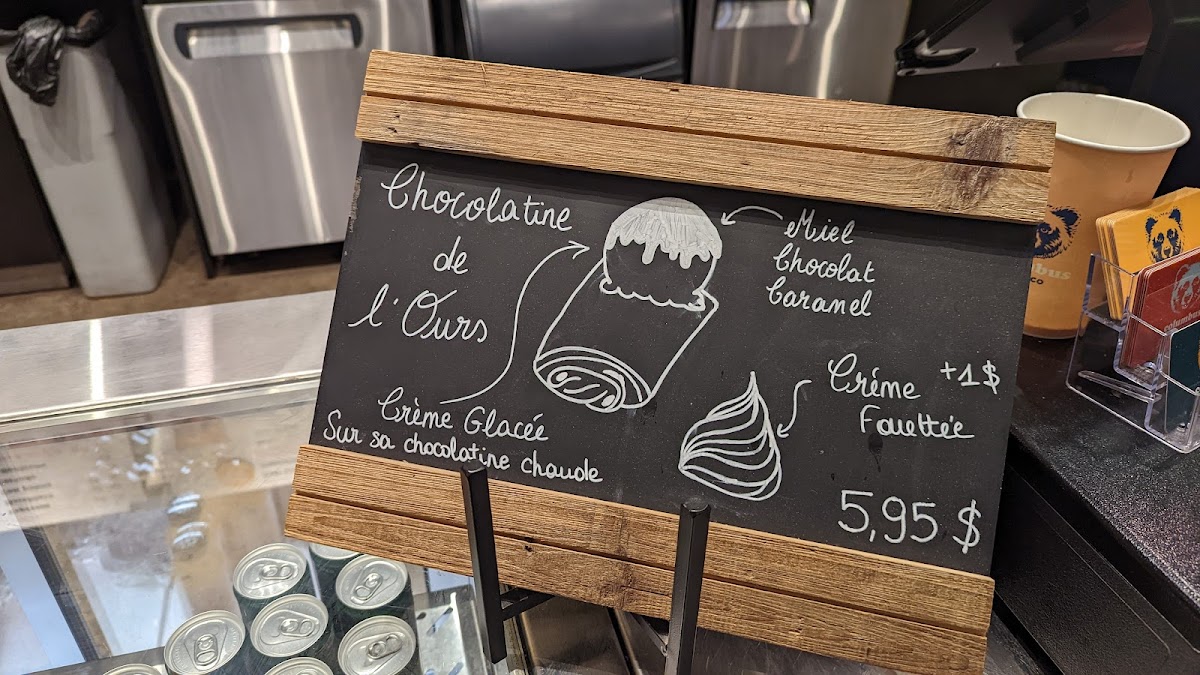 Chocolatine
de
l'Ours
Miel
Chocolat
Caramel
Crème Glacée
Sur sa chocolatine chaude
Créme +1$
Fouettée
5,95 $